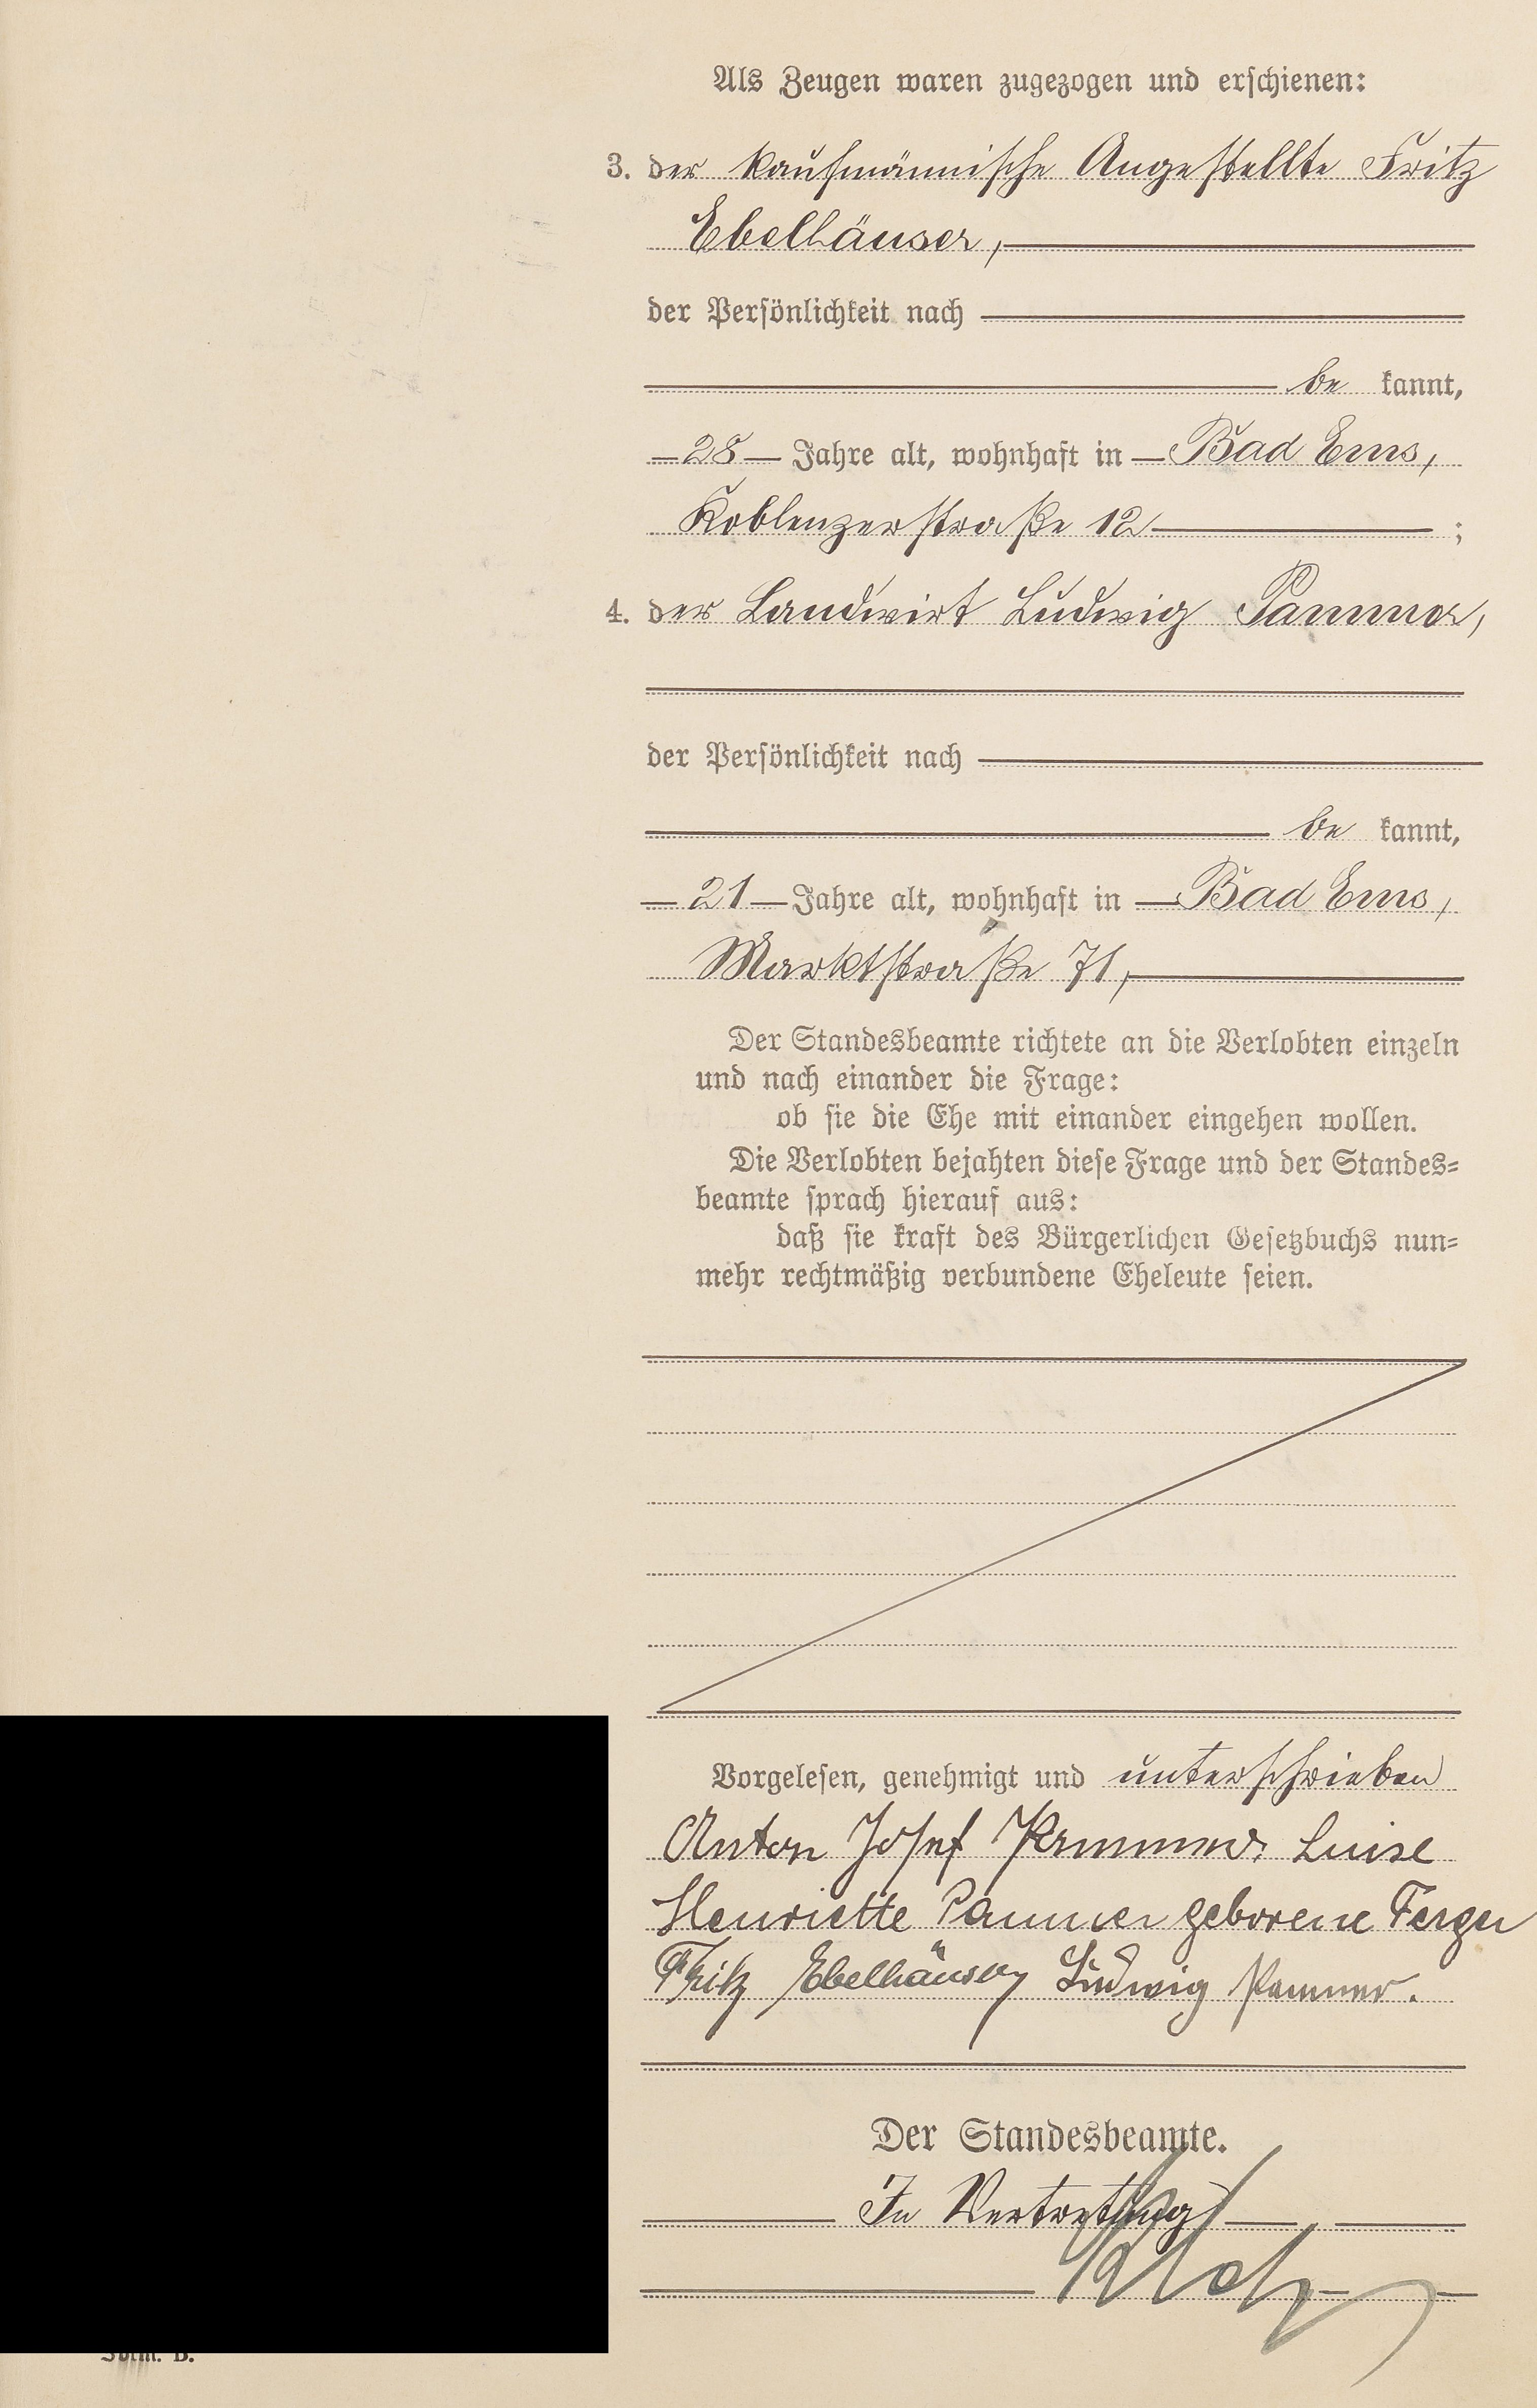 Als Zeugen waren zugezogen und erschienen:
3. der kaufmännische Angestellte Fritz
Ebelhäuser,
der Persönlichkeit nach
be kannt,
28 Jahre alt, wohnhaft in Bad Ems,
Koblenzerstraße 12 ;
4. der Landwirt Ludwig Pammer,
der Persönlichkeit nach
be kannt,
21 Jahre alt, wohnhaft in Bad Ems,
Marktstraße 71,
Der Standesbeamte richtete an die Verlobten einzeln
und nach einander die Frage:
ob sie die Ehe mit einander eingehen wollen.
Die Verlobten bejahten diese Frage und der Standes=
beamte sprach hierauf aus:
daß sie kraft des Bürgerlichen Gesetzbuchs nun=
mehr rechtmäßig verbundene Eheleute seien.
Vorgelesen, genehmigt und unterschrieben
Anton Josef Pammer. Luise
Henriette Pammer geborene Ferger
Fritz Ebelhäuser Ludwig Pammer.
Der Standesbeamte.
In Vertretung
Form. B.